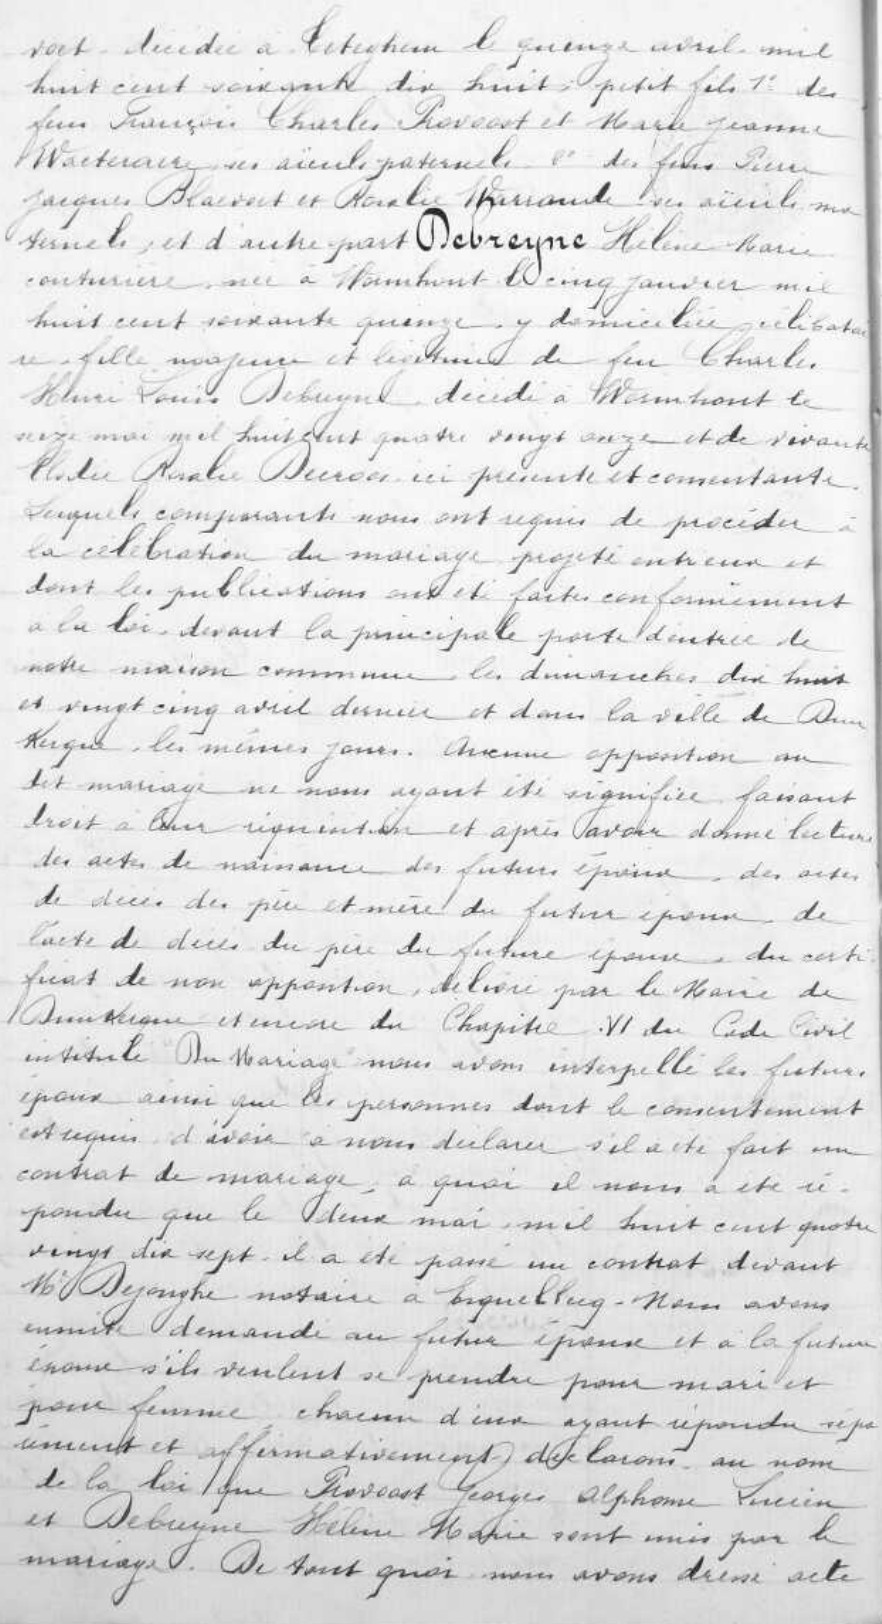 voet décédée à Téteghem le quinze avril mil
huit cent soixante dix huit, petit fils 1° des
feus François Charles Provoost et Marie Jeanne
ses aïeuls paternels 2° des feus Pierre
Jacques Blaevoet et Rosalie Warrande ses aïeuls ma
ternels, et d'autre part Debreyne Hélène Marie
couturière née à Wormhout le cinq janvier mil
huit cent soixante quinze y domiciliée célibatai
re, fille majeure et légitime de feu Charles
Henri Louis Debreyne décédé à Wormhout le
seize mai mil huit cent quatre vingt onze et de vivante
Elodie Rosalie Decroos ici présente et consentante.
Lesquels comparants nous ont requis de procéder à
la célébration du mariage projeté entr'eux et
dont les publications ont été faites conformément
à la loi devant la principale porte d'entrée de
notre maison commune les dimanches dix huit
et vingt cinq avril dernier et dans la ville de Dun
Kerque, les mêmes jours. Aucune opposition au
dit mariage ne nous ayant été signifiée faisant
droit à leur réquisition et après avoir donné lecture
des actes de naissance des futurs époux, des actes
de décès des père et mère du futur époux de
l'acte de décès du père du future épouse, du certi
ficat de non opposition, délivré par le Maire de
Dunkerque et encore du Chapitre VI du Code Civil
intitulé Du Mariage nous avons interpellé les futurs
époux ainsi que les personnes dont le consentement
est requis d'avoir à nous déclarer s'il a été fait un
contrat de mariage, à quoi il nous a été ré-
pondu que le deux mai mil huit cent quatre
vingt dix sept il a été passé un contrat devant
Me Dejonghe notaire à Esquelbecq - Nous avons
ensuite demandé au futur époux et à la future
épouse s'ils veulent se prendre pour mari et
pour femme chacun d'eux ayant répondu sépa
rément et affirmativement, déclarons au nom
de la loi que Provoost Georges Alphonse Lucien
et Debreyne Hélène Marie sont unis par le
mariage. De tout quoi nous avons dressé acte